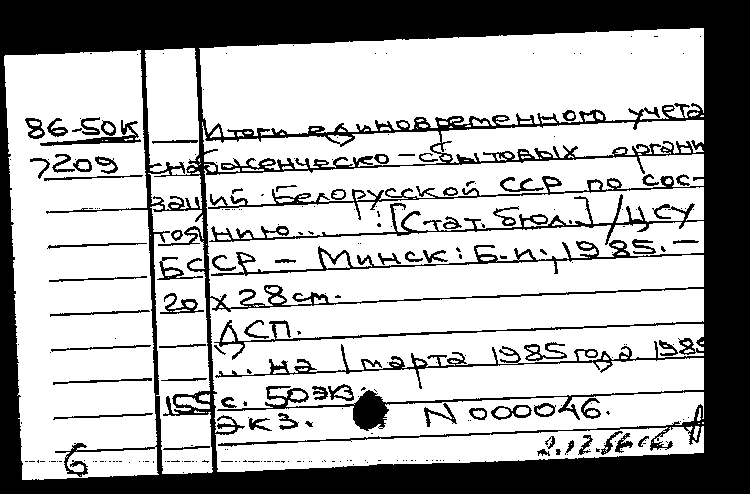 86-50к Итоги единовременного учета
7209 снабженческо-сбытовых органи
заций Белорусской ССР по сос-
тоянию... : [Стат. бюл..] / ЦСУ
БССР. - Минск: Б.и., 1985. -
20 х 28 см.
ДСП.
... на 1 марта 1985 года 1985
155 с. 50 экз.
экз. N 000046.
6